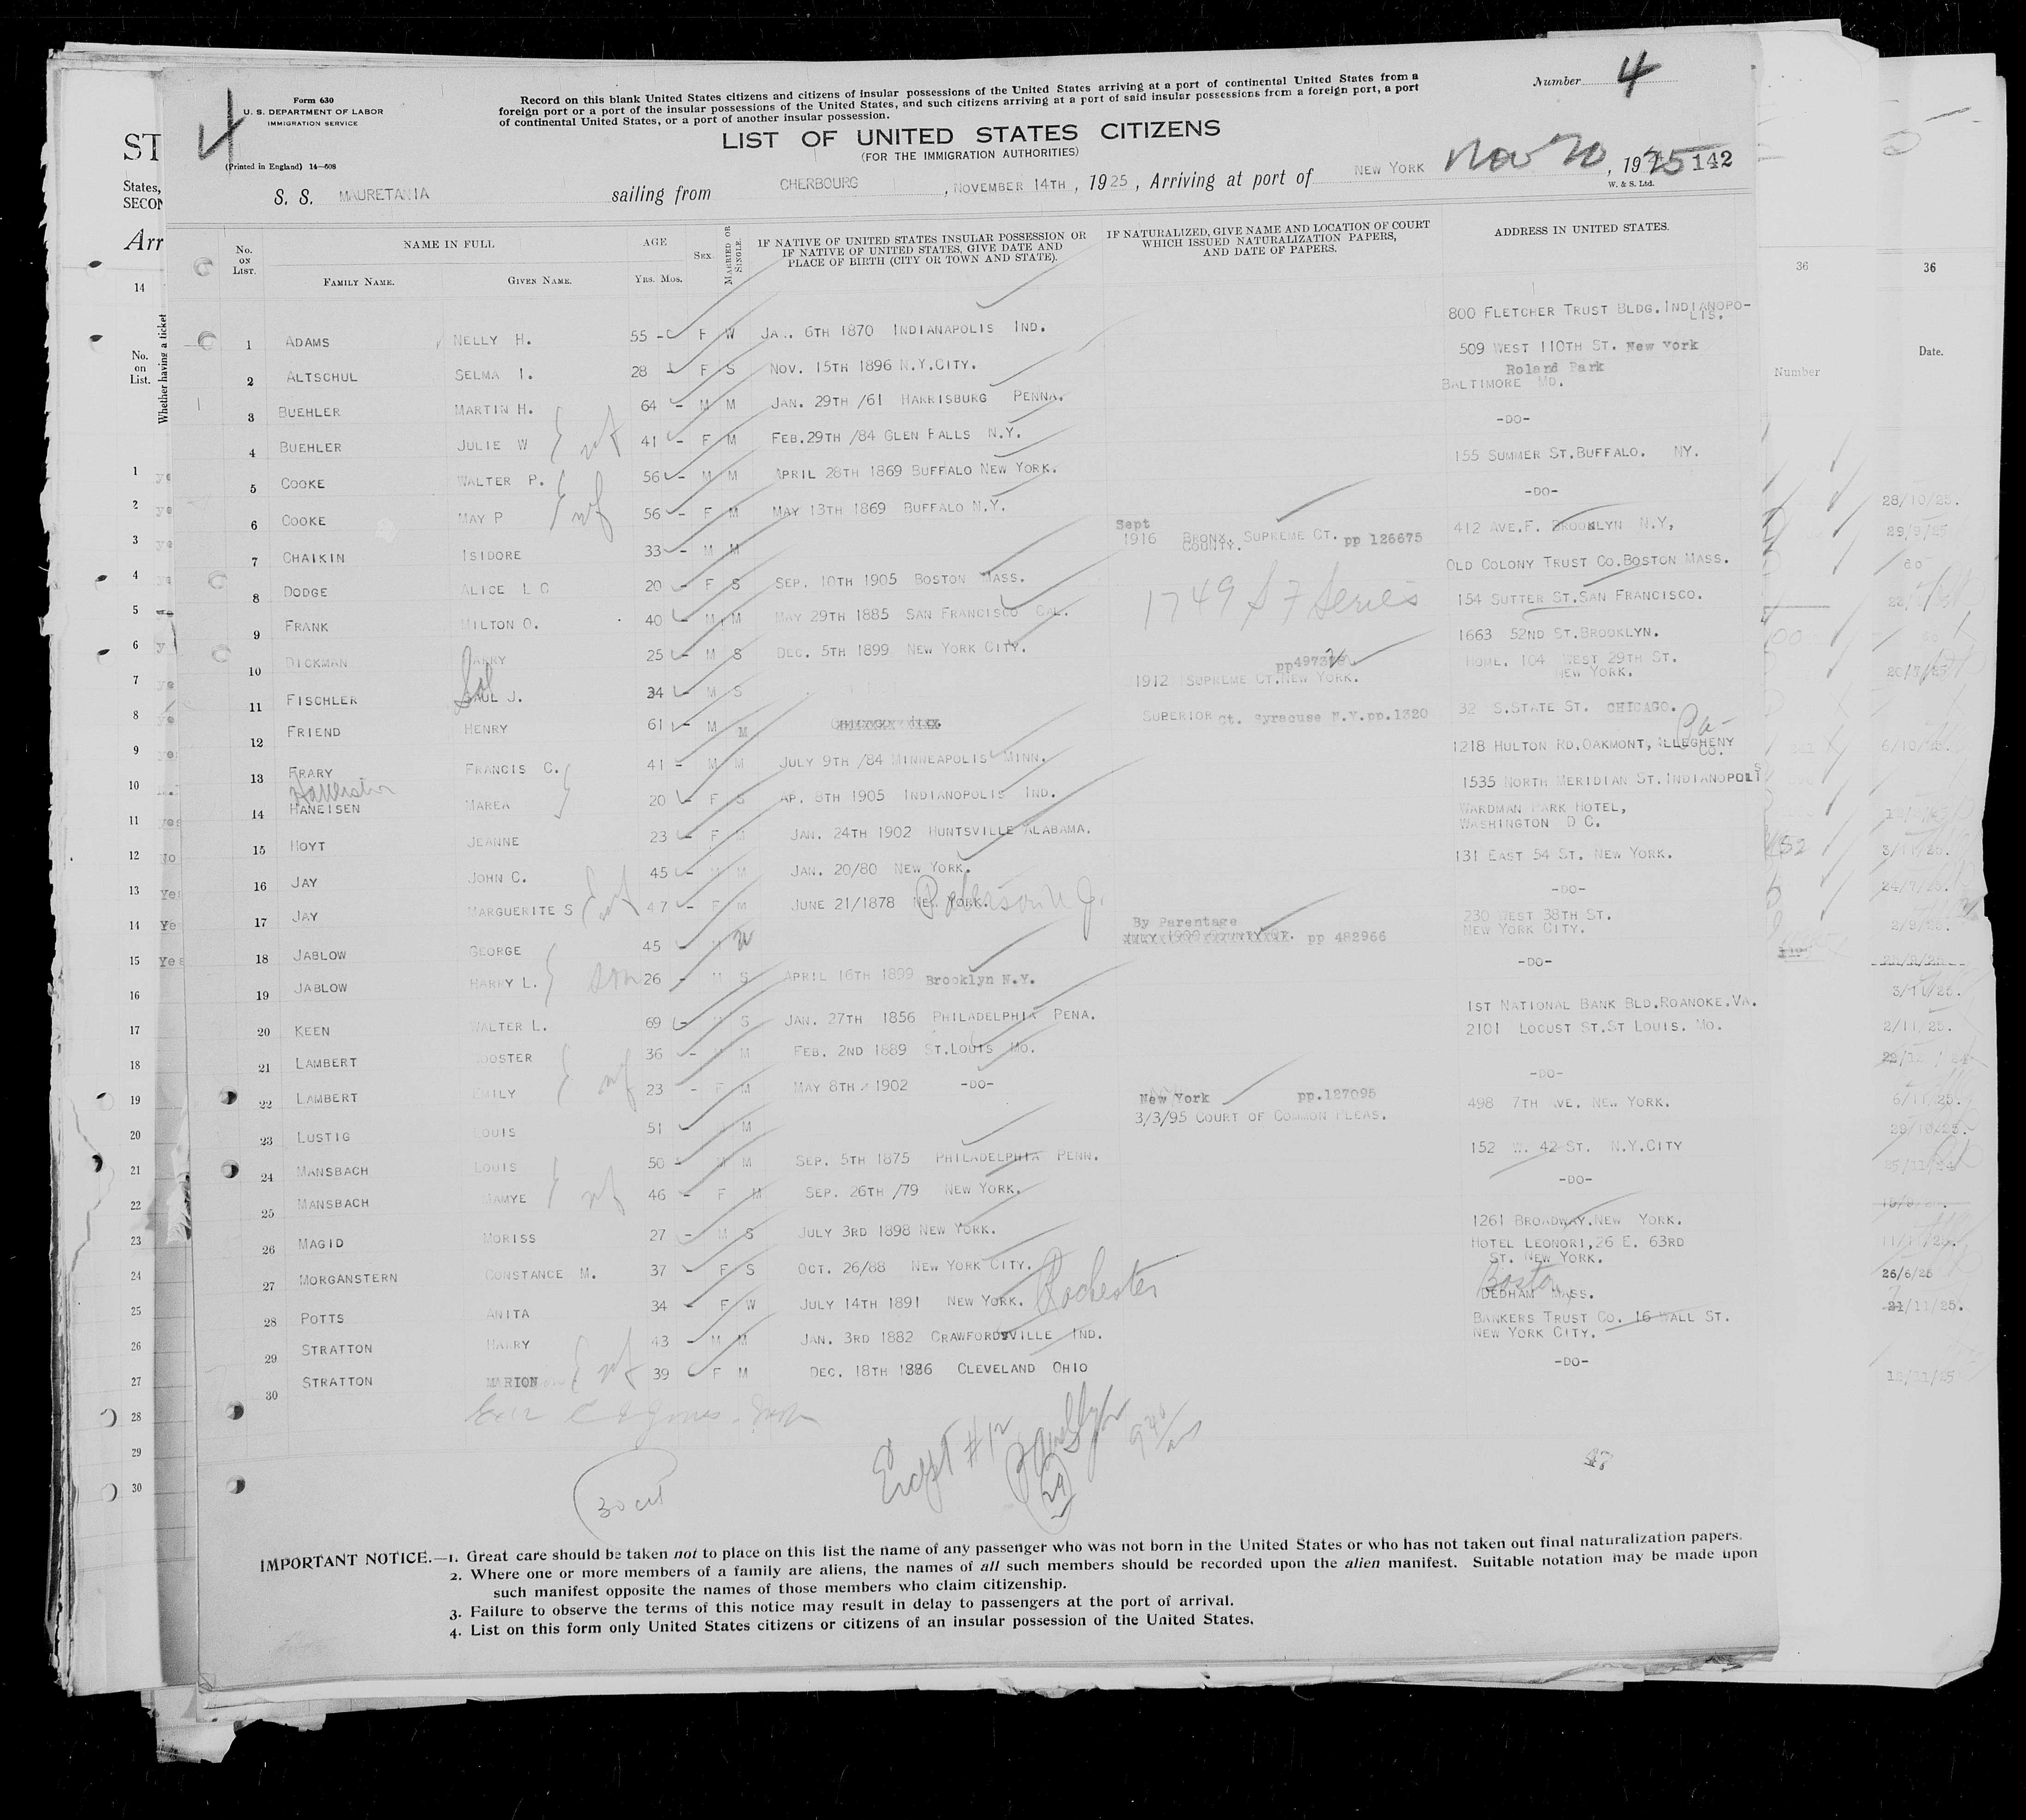 Number 4
4
Form 630
U. S. DEPARTMENT OF LABOR
IMMIGRATION SERVICE
(Printed in England) 14—608
Record on this blank United States citizens and citizens of insular possessions of the United States arriving at a port of continental United States from a
foreign port or a port of the insular possessions of the United States, and such citizens arriving at a port of said insular possessions from a foreign port, a port
of continental United States, or a port of another insular possession.
LIST OF UNITED STATES CITIZENS
(FOR THE IMMIGRATION AUTHORITIES)
S. S. MAURETANIA sailing from CHERBOURG, NOVEMBER 14TH, 1925, Arriving at port of NEW YORK Nov 20, 1925 142
W. & S. Ltd.
No. ON LIST. NAME IN FULL FAMILY NAME. GIVEN NAME. AGE YRS. MOS. SEX MARRIED OR SINGLE. IF NATIVE OF UNITED STATES INSULAR POSSESSION OR IF NATIVE OF UNITED STATES, GIVE DATE AND PLACE OF BIRTH (CITY OR TOWN AND STATE). IF NATURALIZED, GIVE NAME AND LOCATION OF COURT WHICH ISSUED NATURALIZATION PAPERS, AND DATE OF PAPERS. ADDRESS IN UNITED STATES.
1 ADAMS NELLY H. 55 - F W JA.. 6TH 1870 INDIANAPOLIS IND. 800 FLETCHER TRUST BLDG. INDIANOPO-LIS.
2 ALTSCHUL SELMA I. 28 F S NOV. 15TH 1896 N.Y.CITY. 509 WEST 110TH ST. New York
3 BUEHLER MARTIN H. 64 - M M JAN. 29TH /61 HARRISBURG PENNA. Roland Park BALTIMORE MD.
4 BUEHLER JULIE W wf 41 - F M FEB.29TH /84 GLEN FALLS N.Y. -DO-
5 COOKE WALTER P. 56 - M M APRIL 28TH 1869 BUFFALO NEW YORK. 155 SUMMER ST.BUFFALO. NY.
6 COOKE MAY P wf 56 - F M MAY 13TH 1869 BUFFALO N.Y. -DO-
7 CHAIKIN ISIDORE 33 - M M Sept 1916 BRONX. SUPREME CT. COUNTY. pp 126675 412 AVE.F. BROOKLYN N.Y,
8 DODGE ALICE L C 20 - F S SEP. 10TH 1905 BOSTON MASS. OLD COLONY TRUST CO.BOSTON MASS.
9 FRANK MILTON O. 40 - M M MAY 29TH 1885 SAN FRANCISCO CAL. 1749 S F Series 154 SUTTER ST.SAN FRANCISCO.
10 DICKMAN HARRY 25 - M S DEC. 5TH 1899 NEW YORK CITY. 1663 52ND ST.BROOKLYN.
11 FISCHLER Sol SAUL J. 34 - M S 1912 SUPREME CT.NEW YORK. HOME. 104 WEST 29TH ST. NEW YORK.
12 FRIEND HENRY 61 - M M SUPERIOR Ct. Syracuse N.Y.pp.1320 32 S.STATE ST. CHICAGO.
13 FRARY FRANCIS C. 41 - M M JULY 9TH /84 MINNEAPOLIS MINN. 1218 HULTON RD.OAKMONT, ALLEGHENY CO. Pa-
14 HANEISEN MAREA 20 - F S AP. 8TH 1905 INDIANOPOLIS IND. 1535 NORTH MERIDIAN ST.INDIANOPOLIS
15 HOYT JEANNE 23 - F M JAN. 24TH 1902 HUNTSVILLE ALABAMA. WARDMAN PARK HOTEL, WASHINGTON D C.
16 JAY JOHN C. 45 - M M JAN. 20/80 NEW YORK. 131 EAST 54 ST. NEW YORK.
17 JAY MARGUERITE S wf 47 - F M JUNE 21/1878 NEW YORK. Paterson N J. -DO-
18 JABLOW GEORGE 45 M By Parentage pp 482966 230 WEST 38TH ST. NEW YORK CITY.
19 JABLOW HARRY L. son 26 - M S APRIL 16TH 1899 Brooklyn N.Y. -DO-
20 KEEN WALTER L. 69 - M S JAN. 27TH 1856 PHILADELPHIA PENA. 1ST NATIONAL BANK BLD.ROANOKE.VA.
21 LAMBERT WOOSTER 36 - M M FEB. 2ND 1889 ST.LOUIS MO. 2101 LOCUST ST.ST LOUIS. MO.
22 LAMBERT EMILY wf 23 - F M MAY 8TH / 1902 -DO- -DO-
23 LUSTIG LOUIS 51 M New York pp.127095 3/3/95 COURT OF COMMON PLEAS. 498 7TH AVE. NEW YORK.
24 MANSBACH LOUIS 50 - M M SEP. 5TH 1875 PHILADELPHIA PENN. 152 W. 42 ST. N.Y.CITY
25 MANSBACH MAMYE wf 46 - F M SEP. 26TH /79 NEW YORK. -DO-
26 MAGID MORISS 27 - M S JULY 3RD 1898 NEW YORK. 1261 BROADWAY.NEW YORK.
27 MORGANSTERN CONSTANCE M. 37 - F S OCT. 26/88 NEW YORK CITY. HOTEL LEONORI,26 E. 63RD ST. NEW YORK.
28 POTTS ANITA 34 - F W JULY 14TH 1891 NEW YORK. Rochester Boston DEDHAM MASS.
29 STRATTON HARRY 43 - M M JAN. 3RD 1882 CRAWFORDSVILLE IND. BANKERS TRUST CO. 16 WALL ST. NEW YORK CITY.
30 STRATTON MARION wf 39 F M DEC. 18TH 1886 CLEVELAND OHIO -DO-
Except #12
29
30 cit
47
IMPORTANT NOTICE.—1. Great care should be taken not to place on this list the name of any passenger who was not born in the United States or who has not taken out final naturalization papers.
2. Where one or more members of a family are aliens, the names of all such members should be recorded upon the alien manifest. Suitable notation may be made upon
such manifest opposite the names of those members who claim citizenship.
3. Failure to observe the terms of this notice may result in delay to passengers at the port of arrival.
4. List on this form only United States citizens or citizens of an insular possession of the United States.
ST
States,
SECON
Arr
No. on List.
Whether having a ticket
36
Number
36
Date.
28/10/25.
29/9/25
6/10/25.
3/11/25.
24/7/25.
2/9/25.
2/11/25.
6/11/25.
29/10/25.
26/6/25
21/11/25.